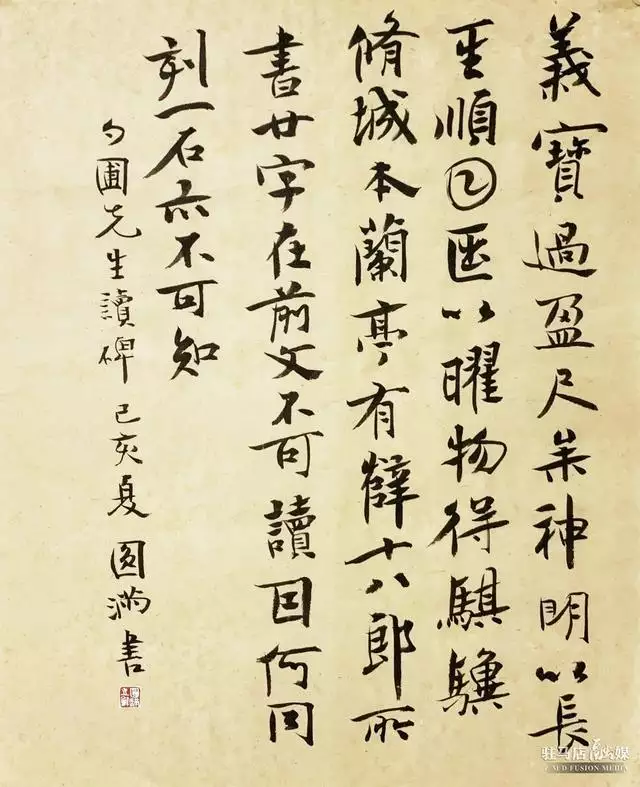 義寶過盈尺神明以長
順𡆠𠥱以曜物得騏驥
脩城本蘭亭有薛十八郎所
書廿字在前文不可讀因何同
刻一石亦不可知
勺圃先生讀碑 己亥夏 圓滿書
驻马店融媒
FUSION MEDIA